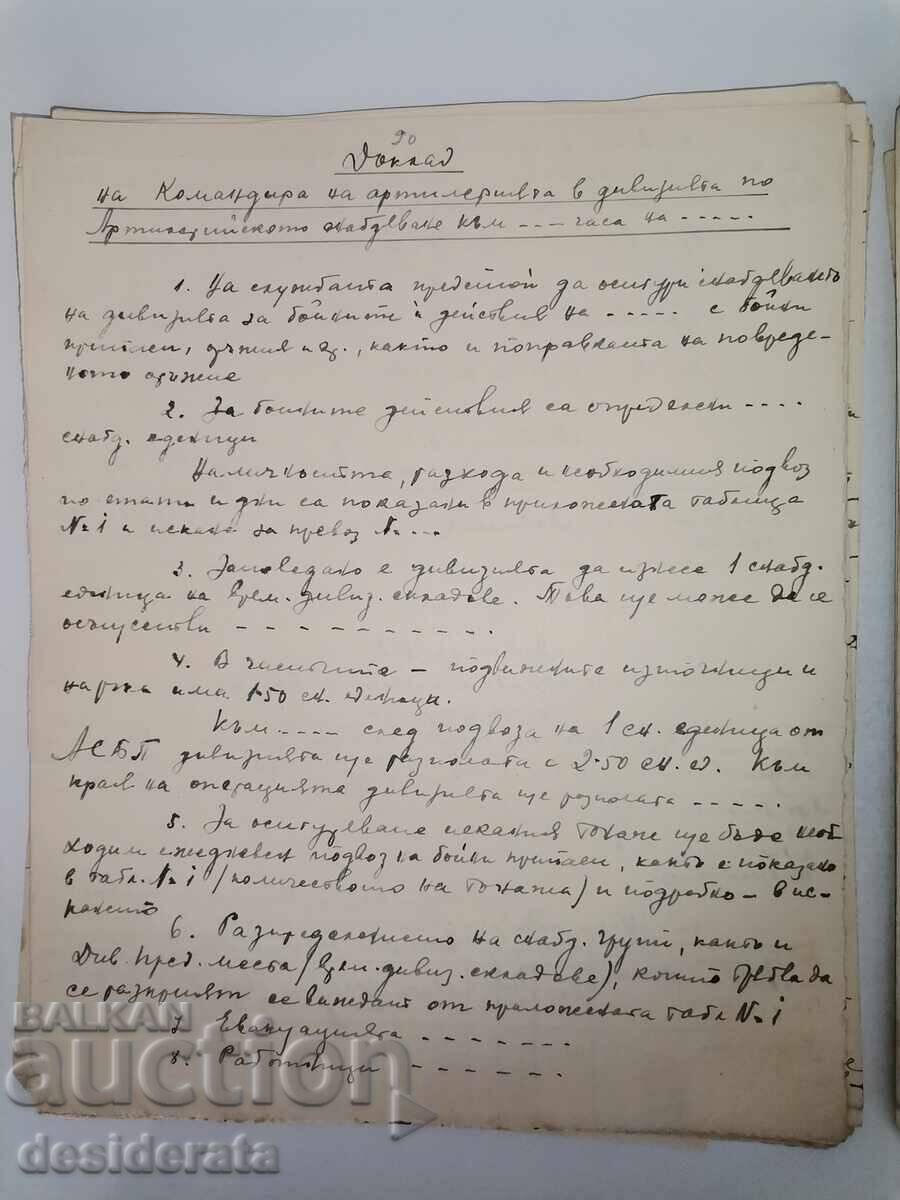 90
Доклад
на Командира на артилерията в дивизията по
Артилерийското снабдяване към --- часа на -----
1. На службата предстои да осигури снабдяването
на дивизията за бойните ѝ действия на ----- с бойни
припаси, оръжия и др., както и поправката на повреде-
ното оръжие
2. За бойните действия са определени ----
снабд. единици
Наличността, разхода и необходимия подвоз
по етапи и дни са показани в приложената таблица
№ 1 и искане за превоз № ---
3. Заповедано е дивизията да изнесе 1 снабд.
единица на врем. дивиз. складове. Това ще може да се
осъществи ----------
4. В частите – подвижните източници и
парка има 1·50 сн. единици.
Към ---- след подвоза на 1 сн. единица от
АСБП дивизията ще разполага с 2·50 сн. ед. Към
края на операцията дивизията ще разполага -----
5. За осигуряване искания тонаж ще бъде необ
ходим ежедневен подвоз на бойни припаси, както е показано
в табл. № 1 /количеството на тонажа/ и подробно – в ис-
кането
6. Разпределението на снабд. групи, както и
Див. пред. места /врем. дивиз. складове/, които трябва да
се разкрият се виждат от приложената табл № 1
7. Евакуацията -------
8. Работници -------
BALKAN
auction
desiderata